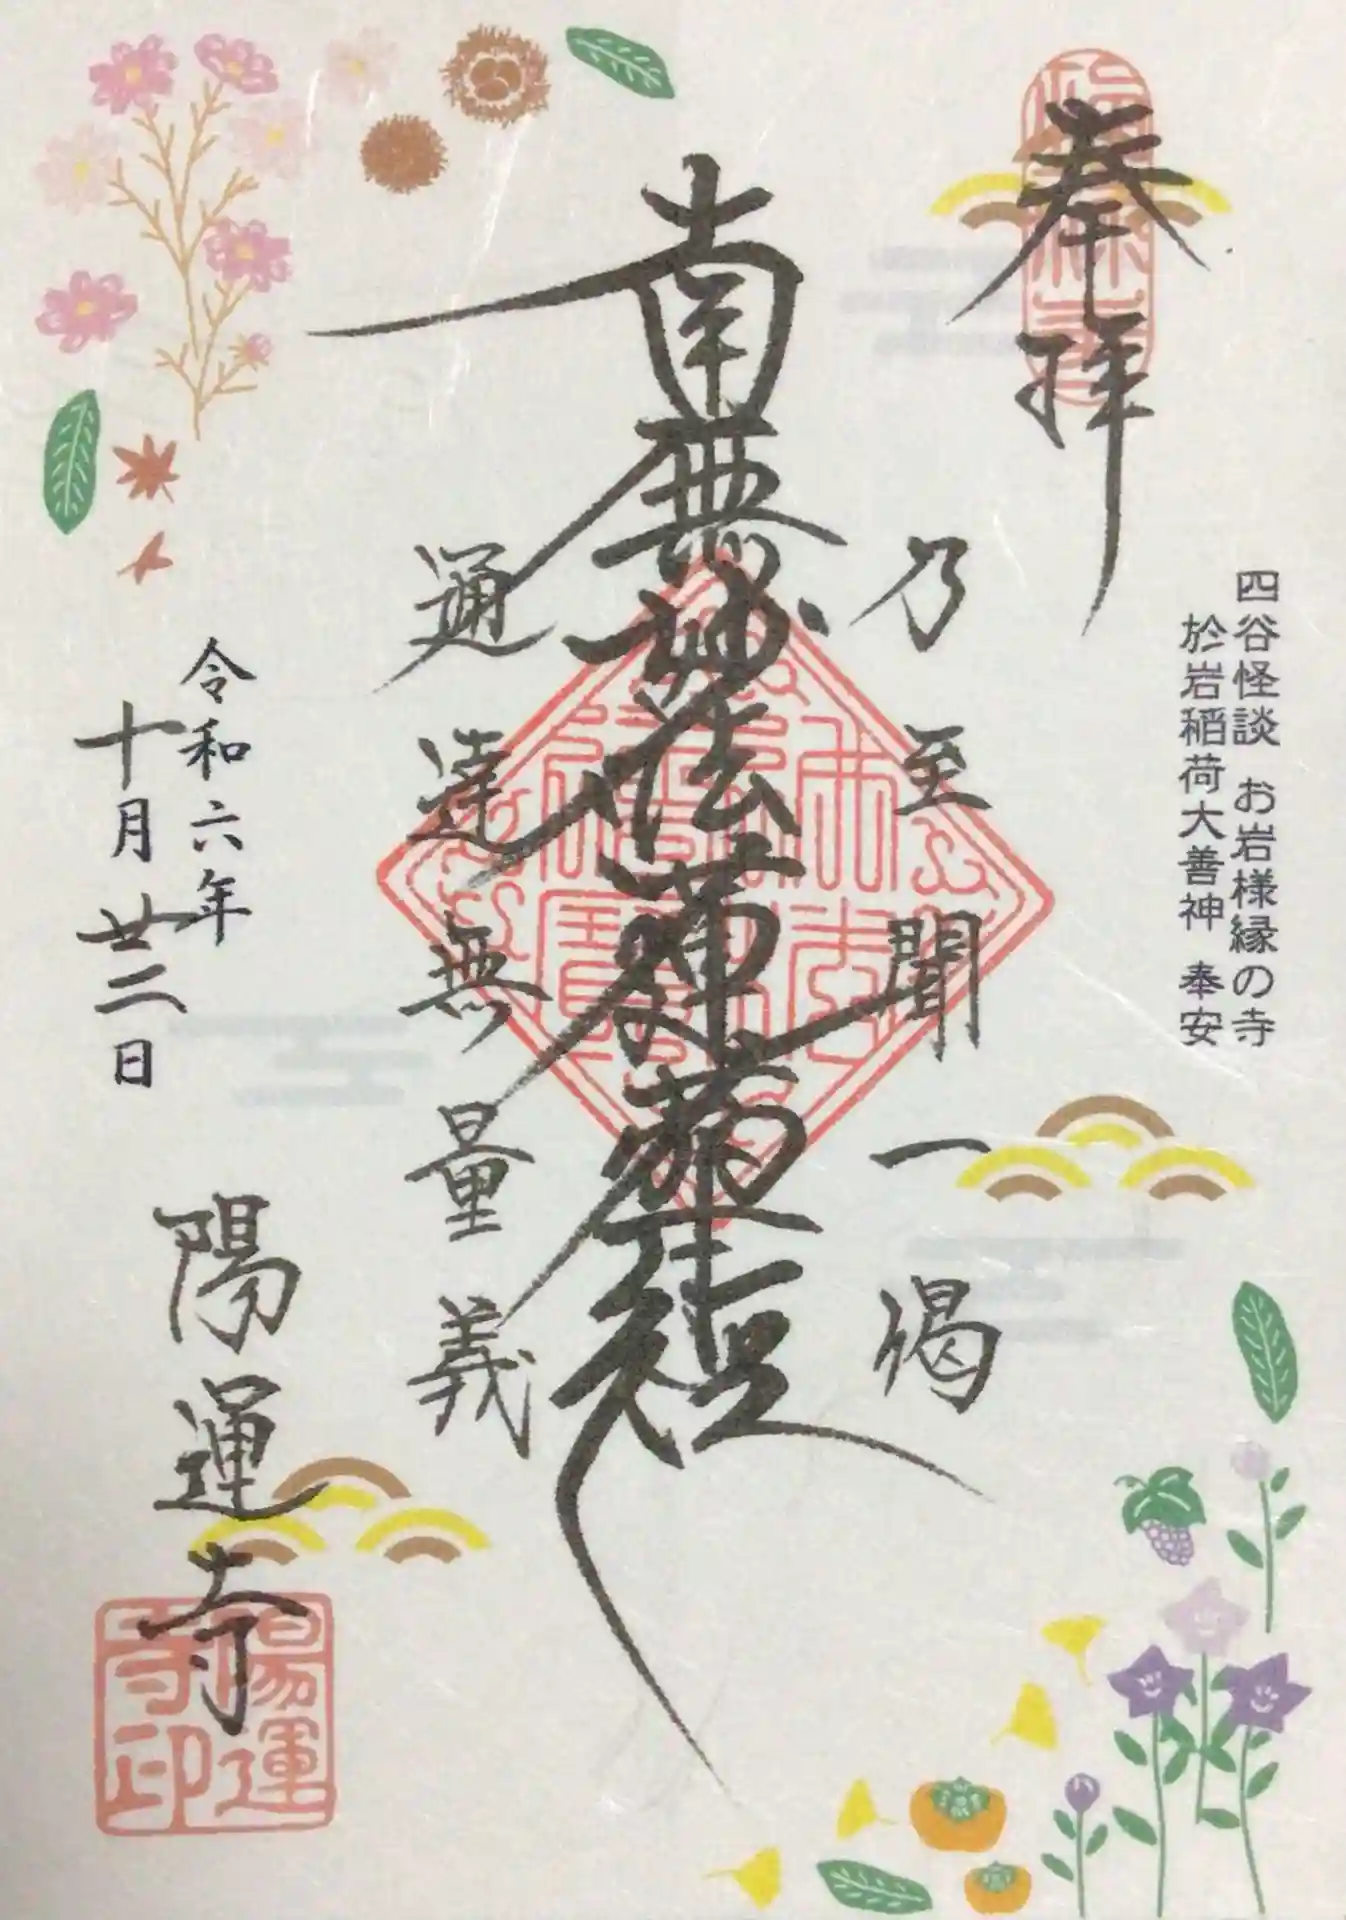 奉拝
四谷怪談 お岩様縁の寺
於岩稲荷大善神 奉安
乃至聞一偈
南無妙法蓮華経
通達無量義
令和六年
十月廿二日
陽運寺
陽運寺印